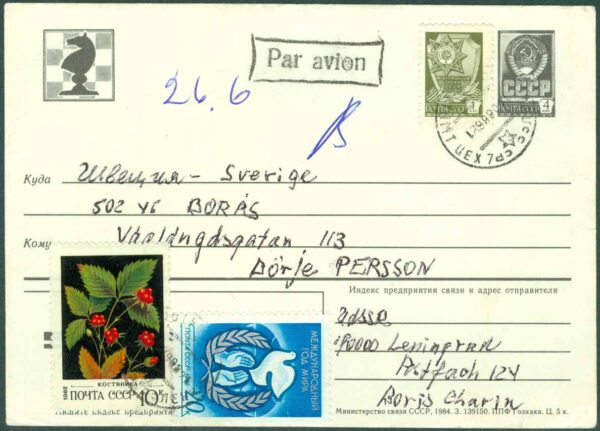 Par avion
26.6
ПОЧТА СССР 1
СССР
ПОЧТА СССР 4
ЦЕХ 7
Куда Швеция - Sverige
502 46 BORÅS
Кому
113
Börje PERSSON
Индекс предприятия связи и адрес отправителя
190000 Leningrad
Postfach 124
Boris Charin
КОСТЯНИКА
1982 ПОЧТА СССР 10к
МЕЖДУНАРОДНЫЙ
ГОД МИРА
ПОЧТА СССР 20
Индекс предприяти
Министерство связи СССР, 1984. З. 139150. ППФ Гознака. Ц. 5 к.